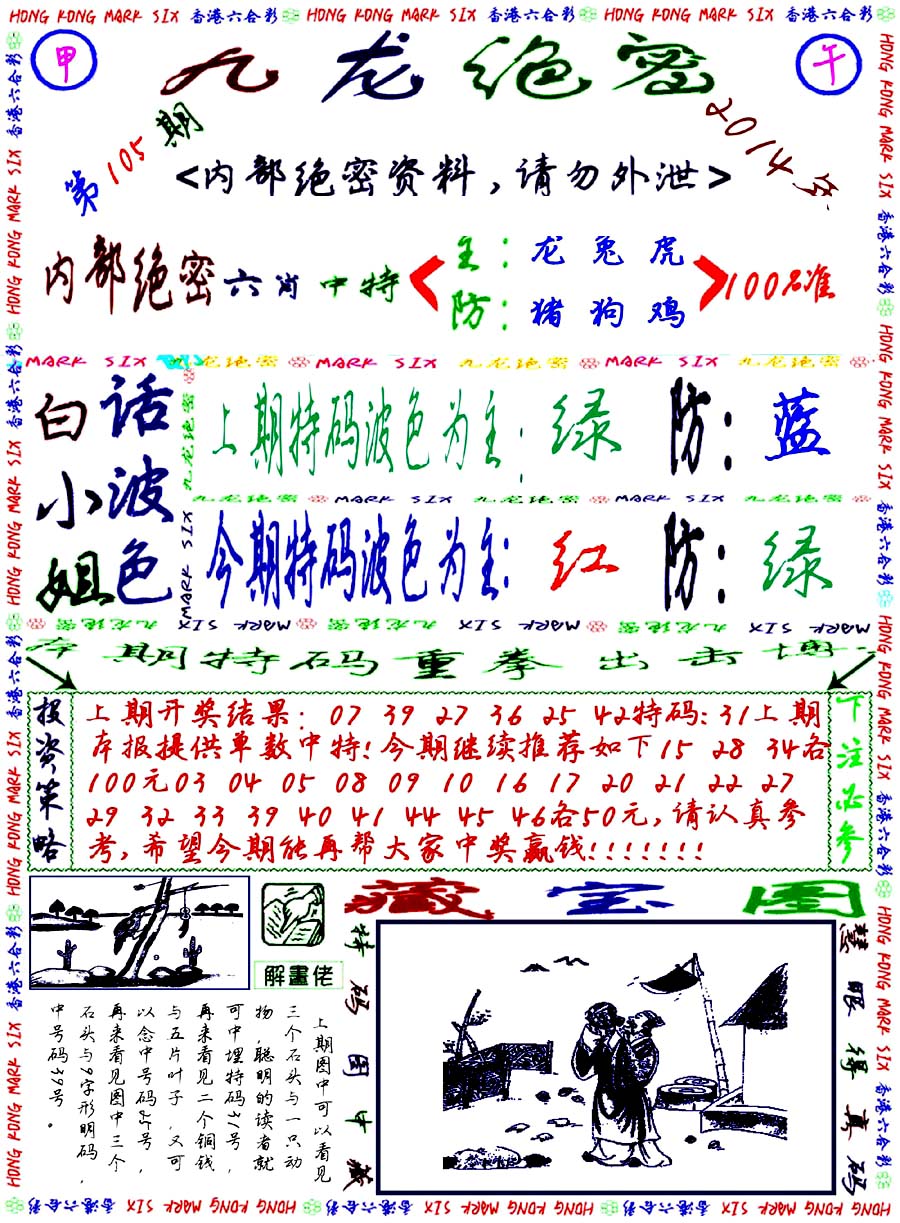 HONG KONG MARK SIX 香港六合彩 HONG KONG MARK SIX 香港六合彩 HONG KONG MARK SIX 香港六合彩
甲
九龙绝密
午
第105期
2014年
<内部绝密资料,请勿外泄>
内部绝密六肖中特
主：龙 兔 虎
防：猪 狗 鸡
100%准
MARK SIX 九龙绝密 MARK SIX 九龙绝密 MARK SIX 九龙绝密
白话小波姐色
上期特码波色为主：绿 防：蓝
九龙绝密 MARK SIX 九龙绝密 MARK SIX 九龙绝密
今期特码波色为主:红 防：绿
九龙绝密 MARK SIX 九龙绝密 MARK SIX 九龙绝密 MARK SIX
本期特码重拳出击博
投资策略
上期开奖结果：07 39 27 36 25 42特码:31上期
本报提供单数中特!今期继续推荐如下15 28 34各
100元03 04 05 08 09 10 16 17 20 21 22 27
29 32 33 39 40 41 44 45 46各50元,请认真参
考,希望今期能再帮大家中奖赢钱!!!!!!!
下注必参
解畫佬
藏宝图
特码图中藏
慧眼得真码
上期图中可以看见
三个石头与一只动
物,聪明的读者就
可中埋特码31号,
再来看见二个铜钱
与五片叶子,又可
以念中号码25号,
再来看见图中三个
石头与9字形明码,
中号码39号。
HONG KONG MARK SIX 香港六合彩 HONG KONG MARK SIX 香港六合彩 HONG KONG MARK SIX 香港六合彩